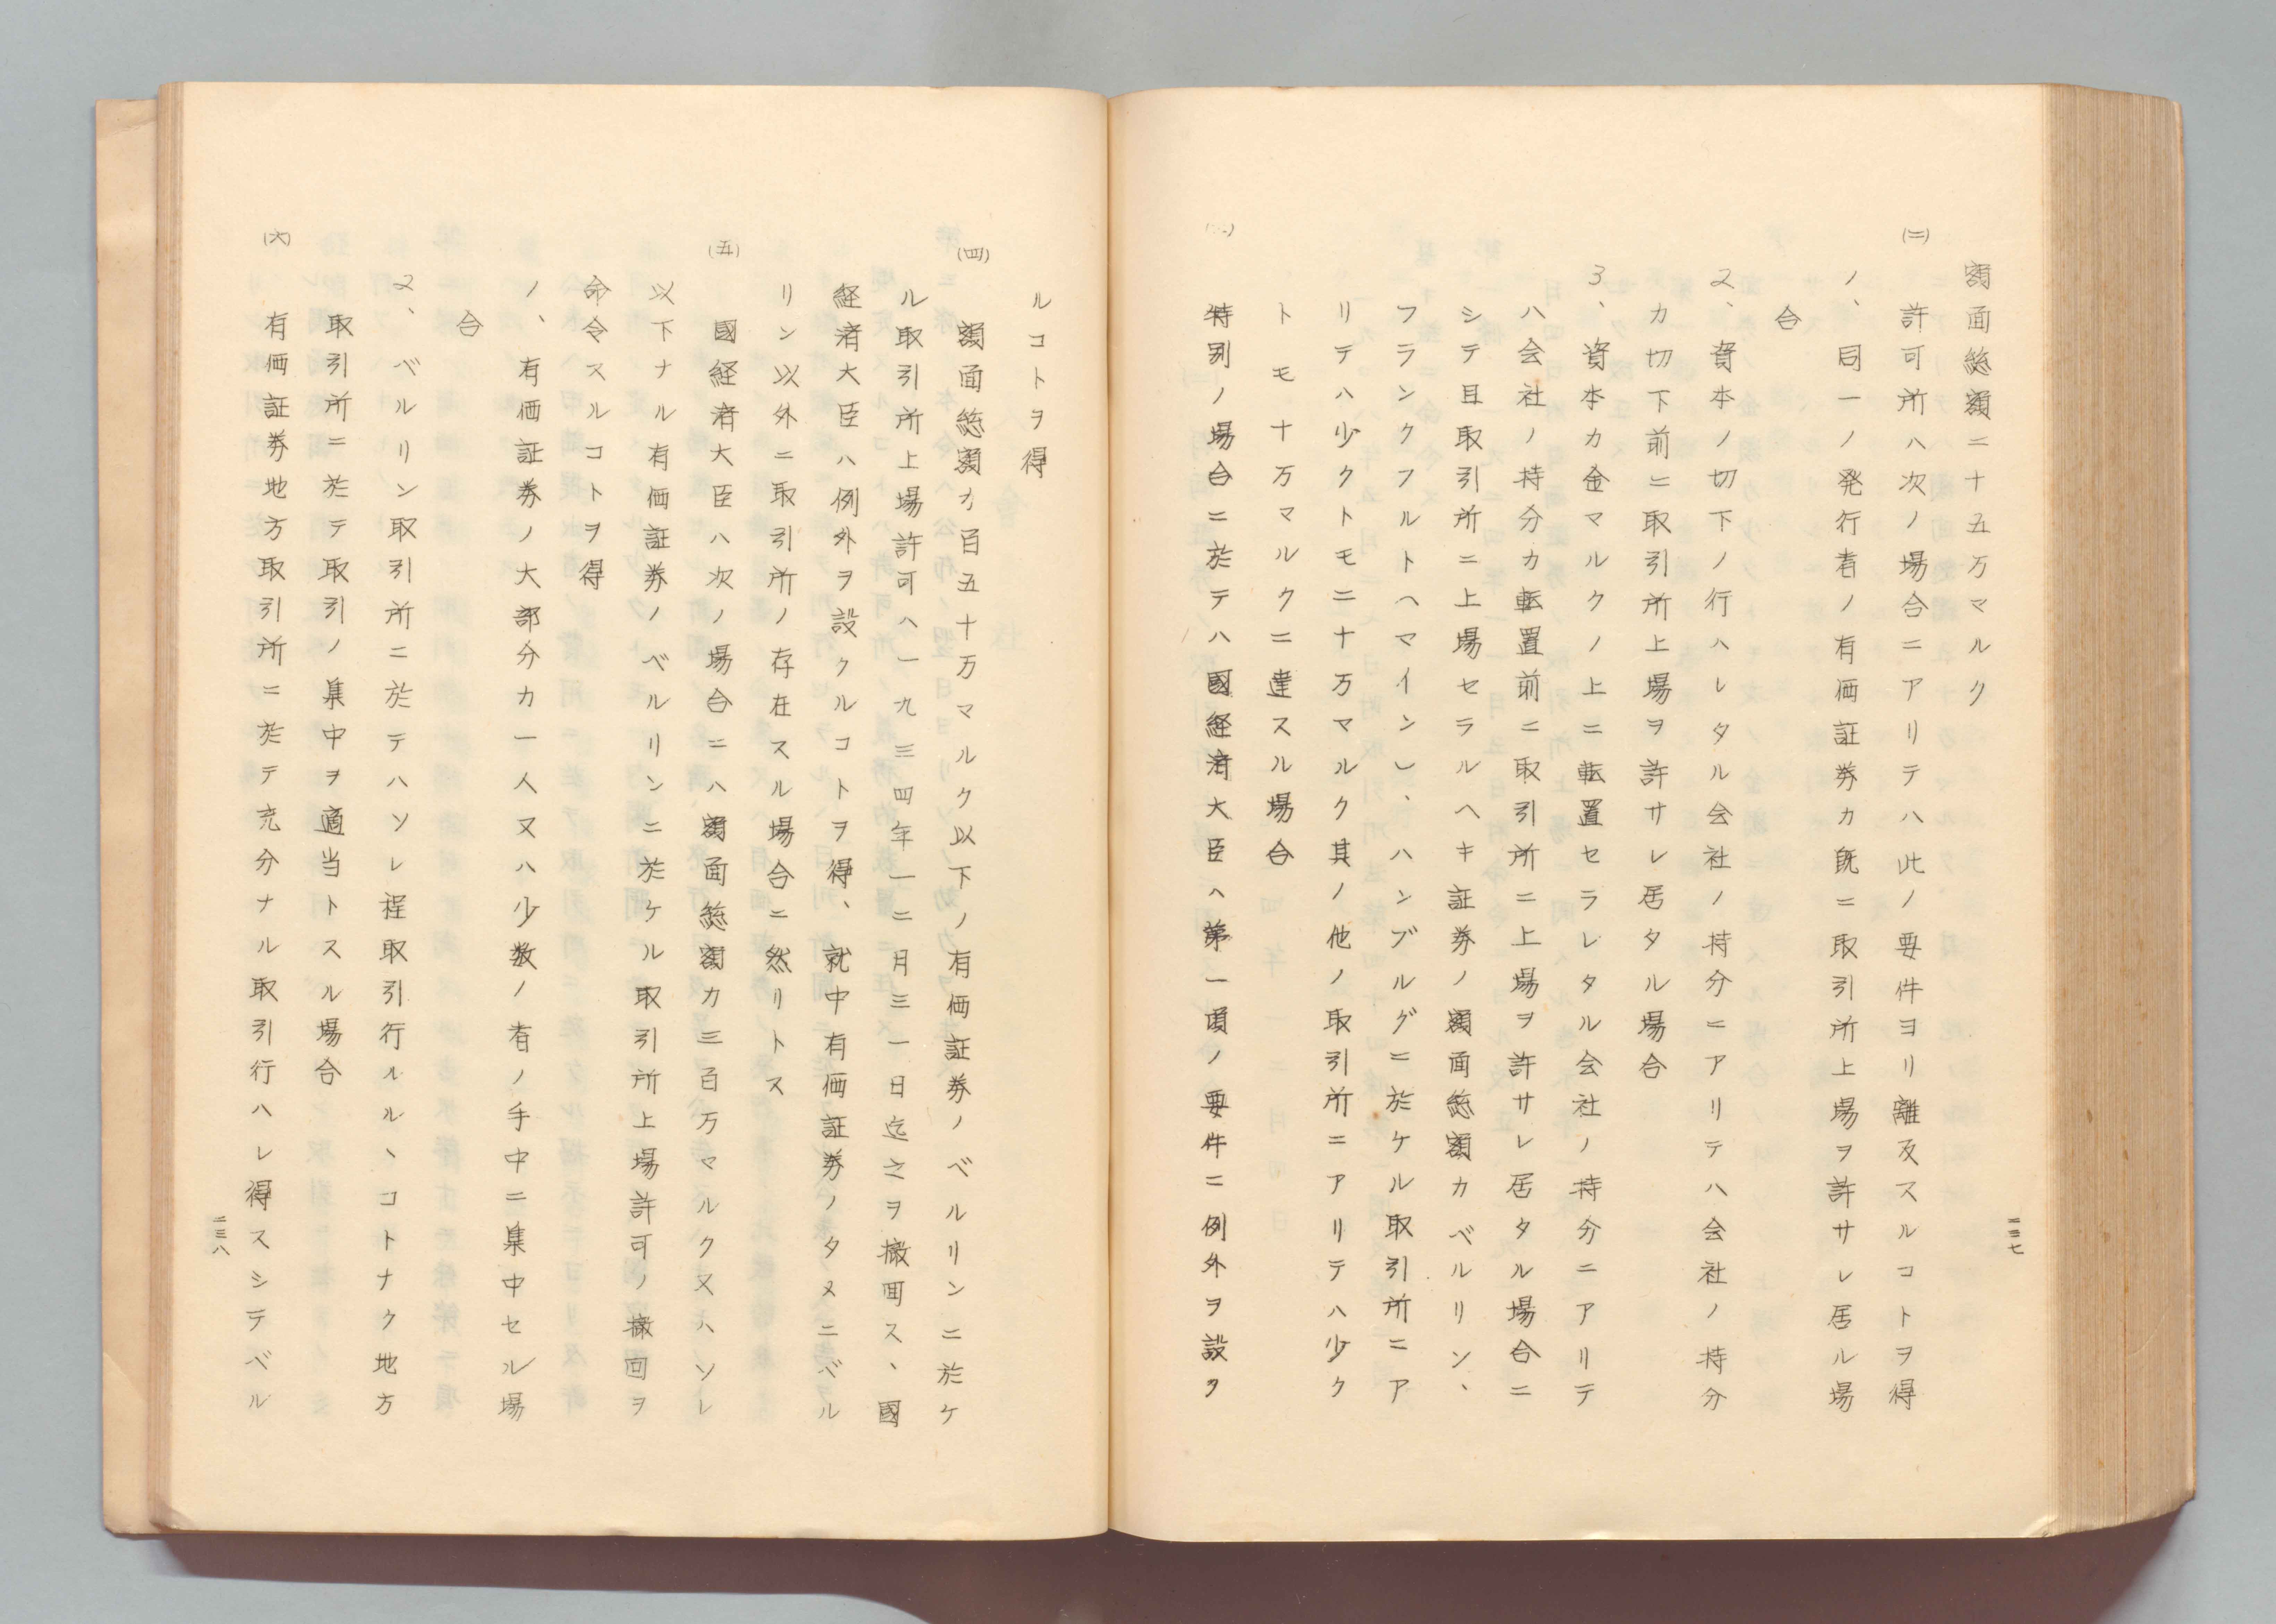 額面総額二十五万マルク
(二) 許可所ハ次ノ場合ニアリテハ此ノ要件ヨリ離反スルコトヲ得
1、同一ノ発行者ノ有価証券カ既ニ取引所上場ヲ許サレ居ル場
合
2、資本ノ切下ノ行ハレタル会社ノ持分ニアリテハ会社ノ持分
カ切下前ニ取引所上場ヲ許サレ居タル場合
3、資本カ金マルクノ上ニ転置セラレタル会社ノ持分ニアリテ
ハ会社ノ持分カ転置前ニ取引所ニ上場ヲ許サレ居タル場合ニ
シテ且取引所ニ上場セラルヘキ証券ノ額面総額カベルリン、
フランクフルトヘマイン)、ハンブルグニ於ケル取引所ニア
リテハ少クトモ二十万マルク其ノ他ノ取引所ニアリテハ少ク
トモ十万マルクニ達スル場合
特別ノ場合ニ於テハ國経済大臣ヘ第一項ノ要件ニ例外ヲ設ク
二三七
ルコトヲ得
(四) 額面総額カ百五十万マルク以下ノ有価証券ノベルリンニ於ケ
ル取引所上場許可ヘ一九三四年一二月三一日迄之ヲ撤囬ス、國
経済大臣ハ例外ヲ設クルコトヲ得、就中有価証券ノタメニベル
リン以外ニ取引所ノ存在スル場合ニ然リトス
(五) 國経済大臣ハ次ノ場合ニハ額面総額カ三百万マルク又ハソレ
以下ナル有価証券ノベルリンニ於ケル取引所上場許可ノ撤回ヲ
命令スルコトヲ得
1、有価証券ノ大部分カ一人又ハ少数ノ者ノ手中ニ集中セル場
合
2、ベルリン取引所ニ於テハソレ程取引行ルル、コトナク地方
取引所ニ於テ取引ノ集中ヲ適当トスル場合
(六) 有価証券地方取引所ニ於テ充分ナル取引行ハレ得スシテベル
二三八